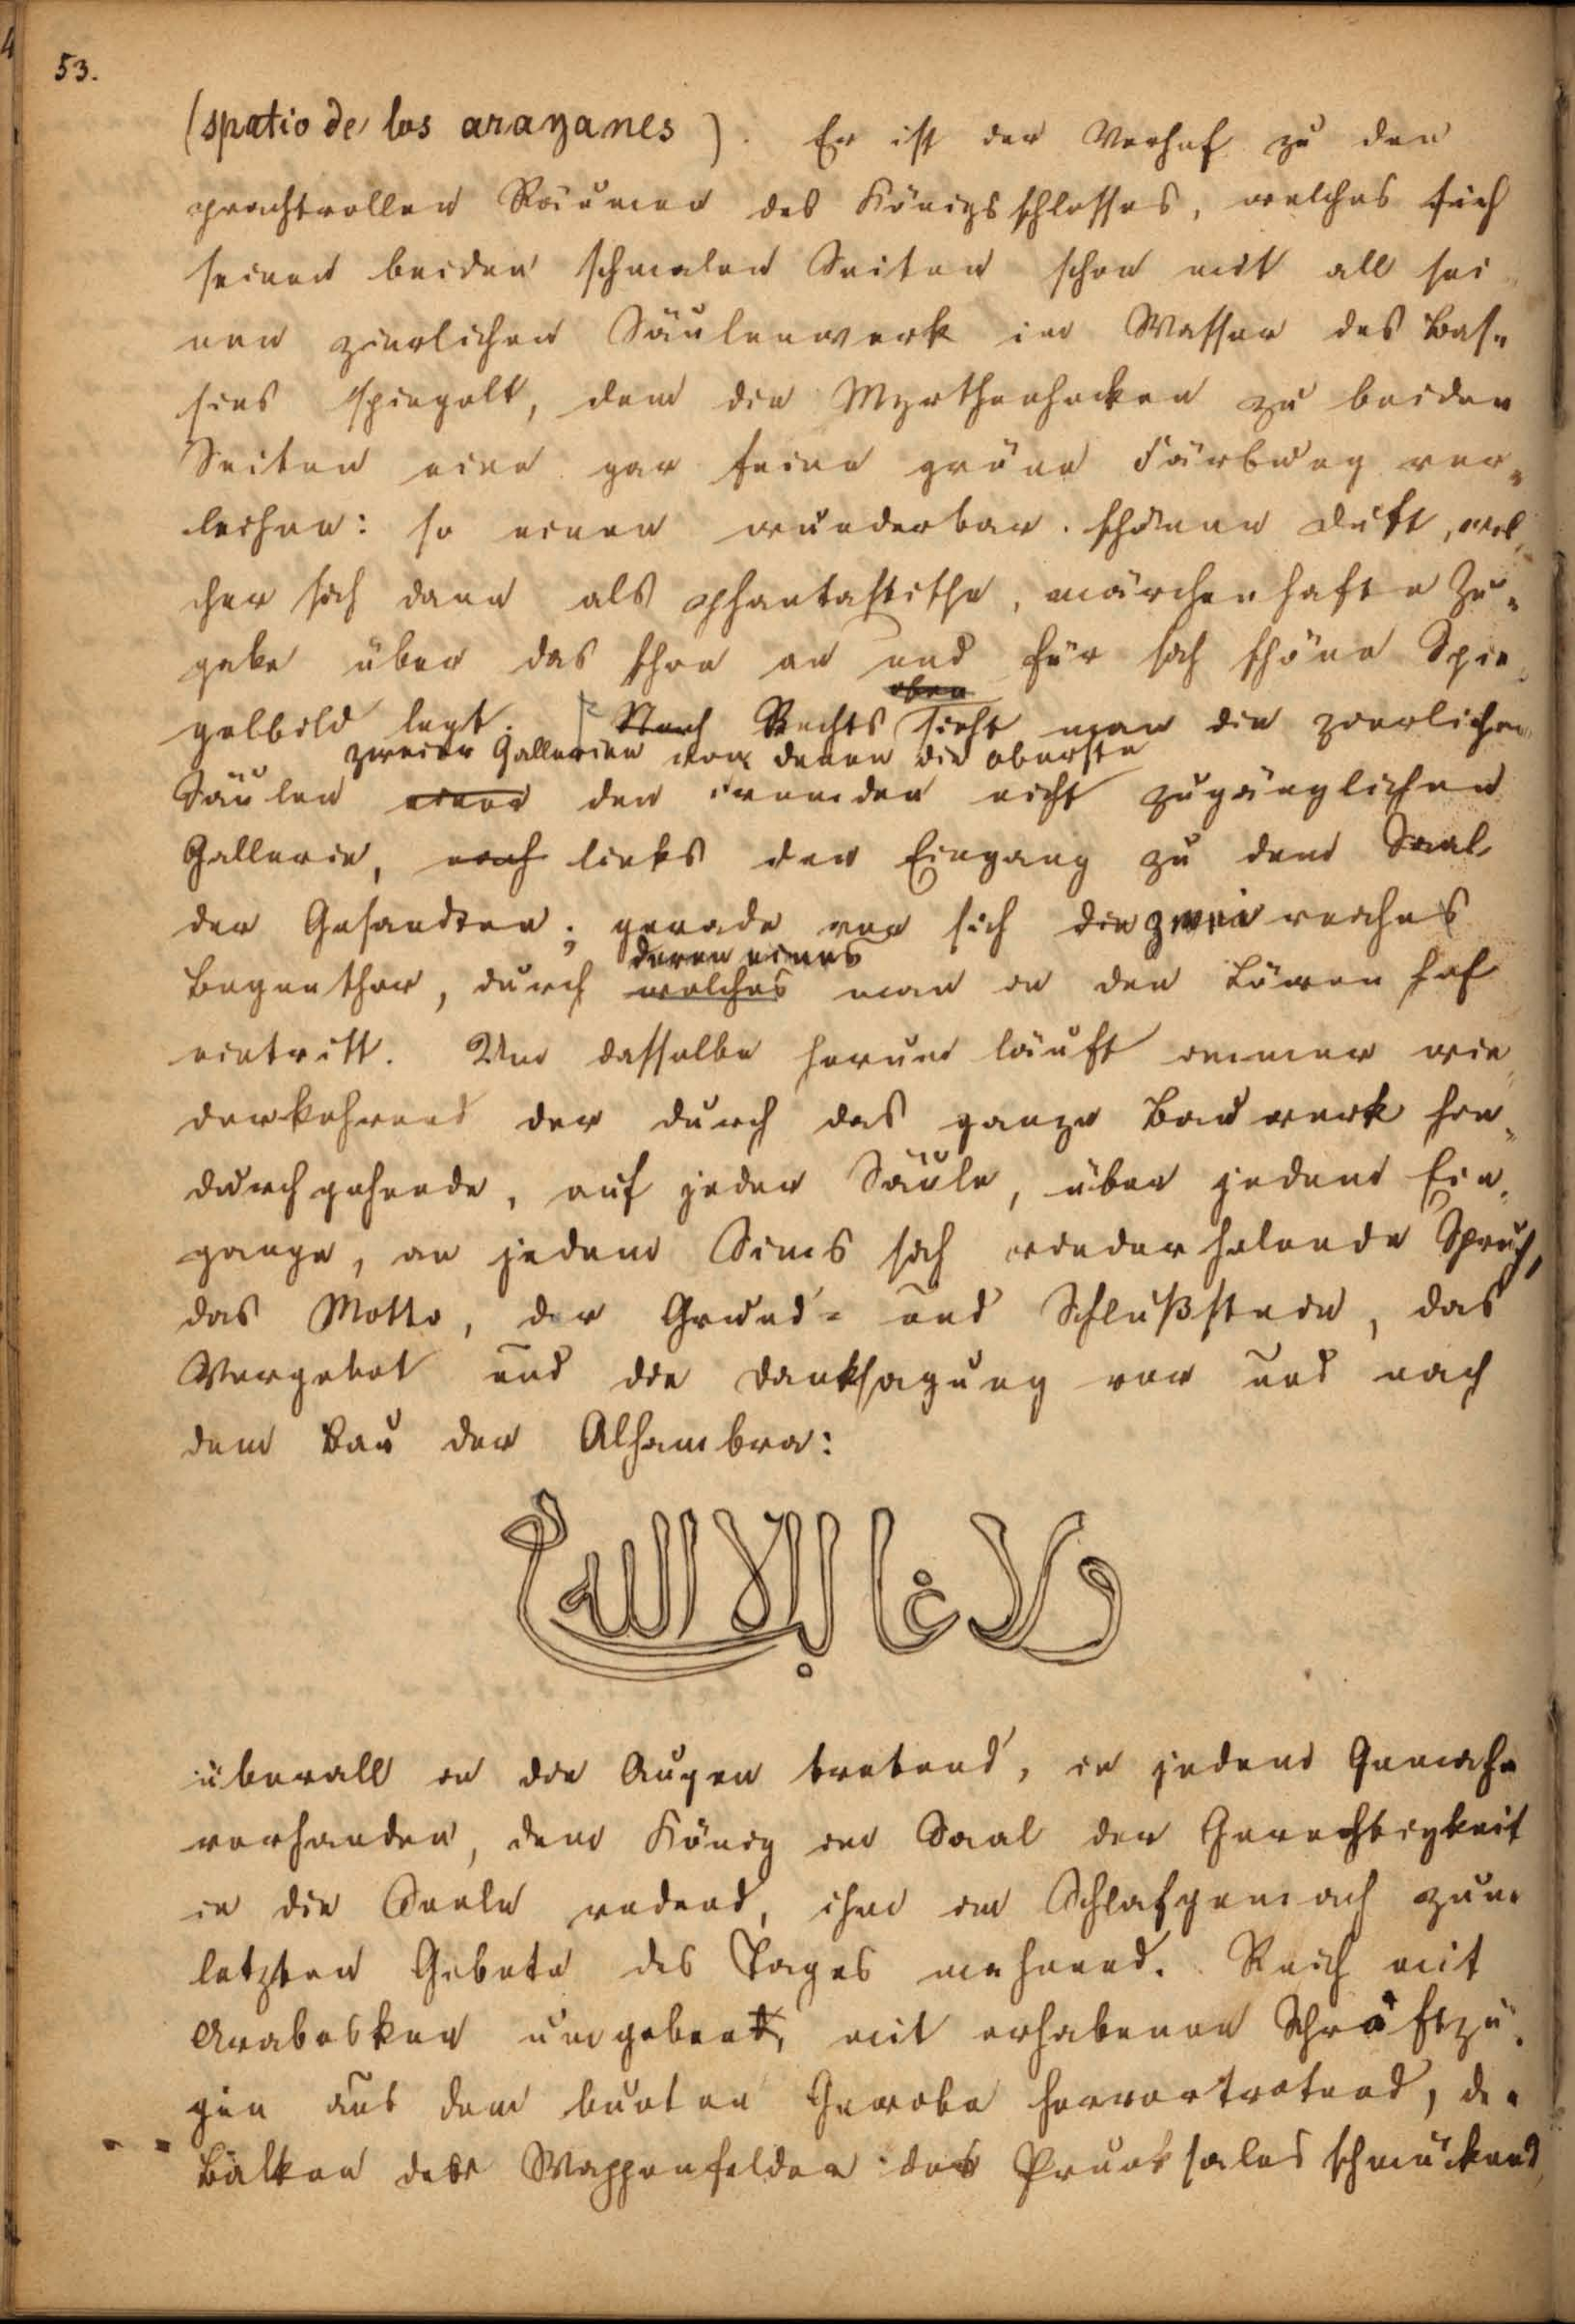 53.
(spatio de los arayanes). Er ist der Vorhof zu den
prachtvollen Räumen des Königsschlosses, welches sich
seinen beiden schmalen Seiten schon mit all sei
nen zierlichen Säulenwerk im Wasser des Bas=
sins spiegelt, dem die Myrthenhecken zu beiden
Seiten eine gar feine grüne Färbung ver=
leihen: so einen wunderbar schönen Duft, wel
cher sich dann als phantastische, märchenhafte Zu=
gabe über das schon an und für sich schöne Spie
oben
gelbild legt. Nach Rechts sieht man die zierlichen
zweier Gallerien von denen die oberste
Säulen einer den Fremden nicht zugänglichen
Gallerie, nach links den Eingang zu dem Saal
der Gesandten; gerade vor sich die zwei reiches
deren eines
Bogenthor, durch welches man in den Löwenhof
eintritt. Um dasselbe herum läuft immer wie
derkehrend der durch das ganze Bauwerk hin=
durchgehende, auf jeder Säule, über jedem Ein=
gange, an jedem Sims sich wiederholende Spruch,
das Motto, der Grund= und Schlußstein, das
Vorgebot und die Danksagung vor und nach
dem Bau der Alhambra:
ولا غالب الا الله
überall in die Augen tretend, in jedem Gemache
vorhanden, dem König im Saal der Gerechtigkeit
in die Seele redend, ihn im Schlafgemach zum
letzten Gebete des Tages mahnend. Reich mit
Arabesken umgeben, mit erhabenen Schriftzü=
gen aus dem bunten Gewebe hervortretend, die
Balken der Wappenfelder des Prunksales schmückend